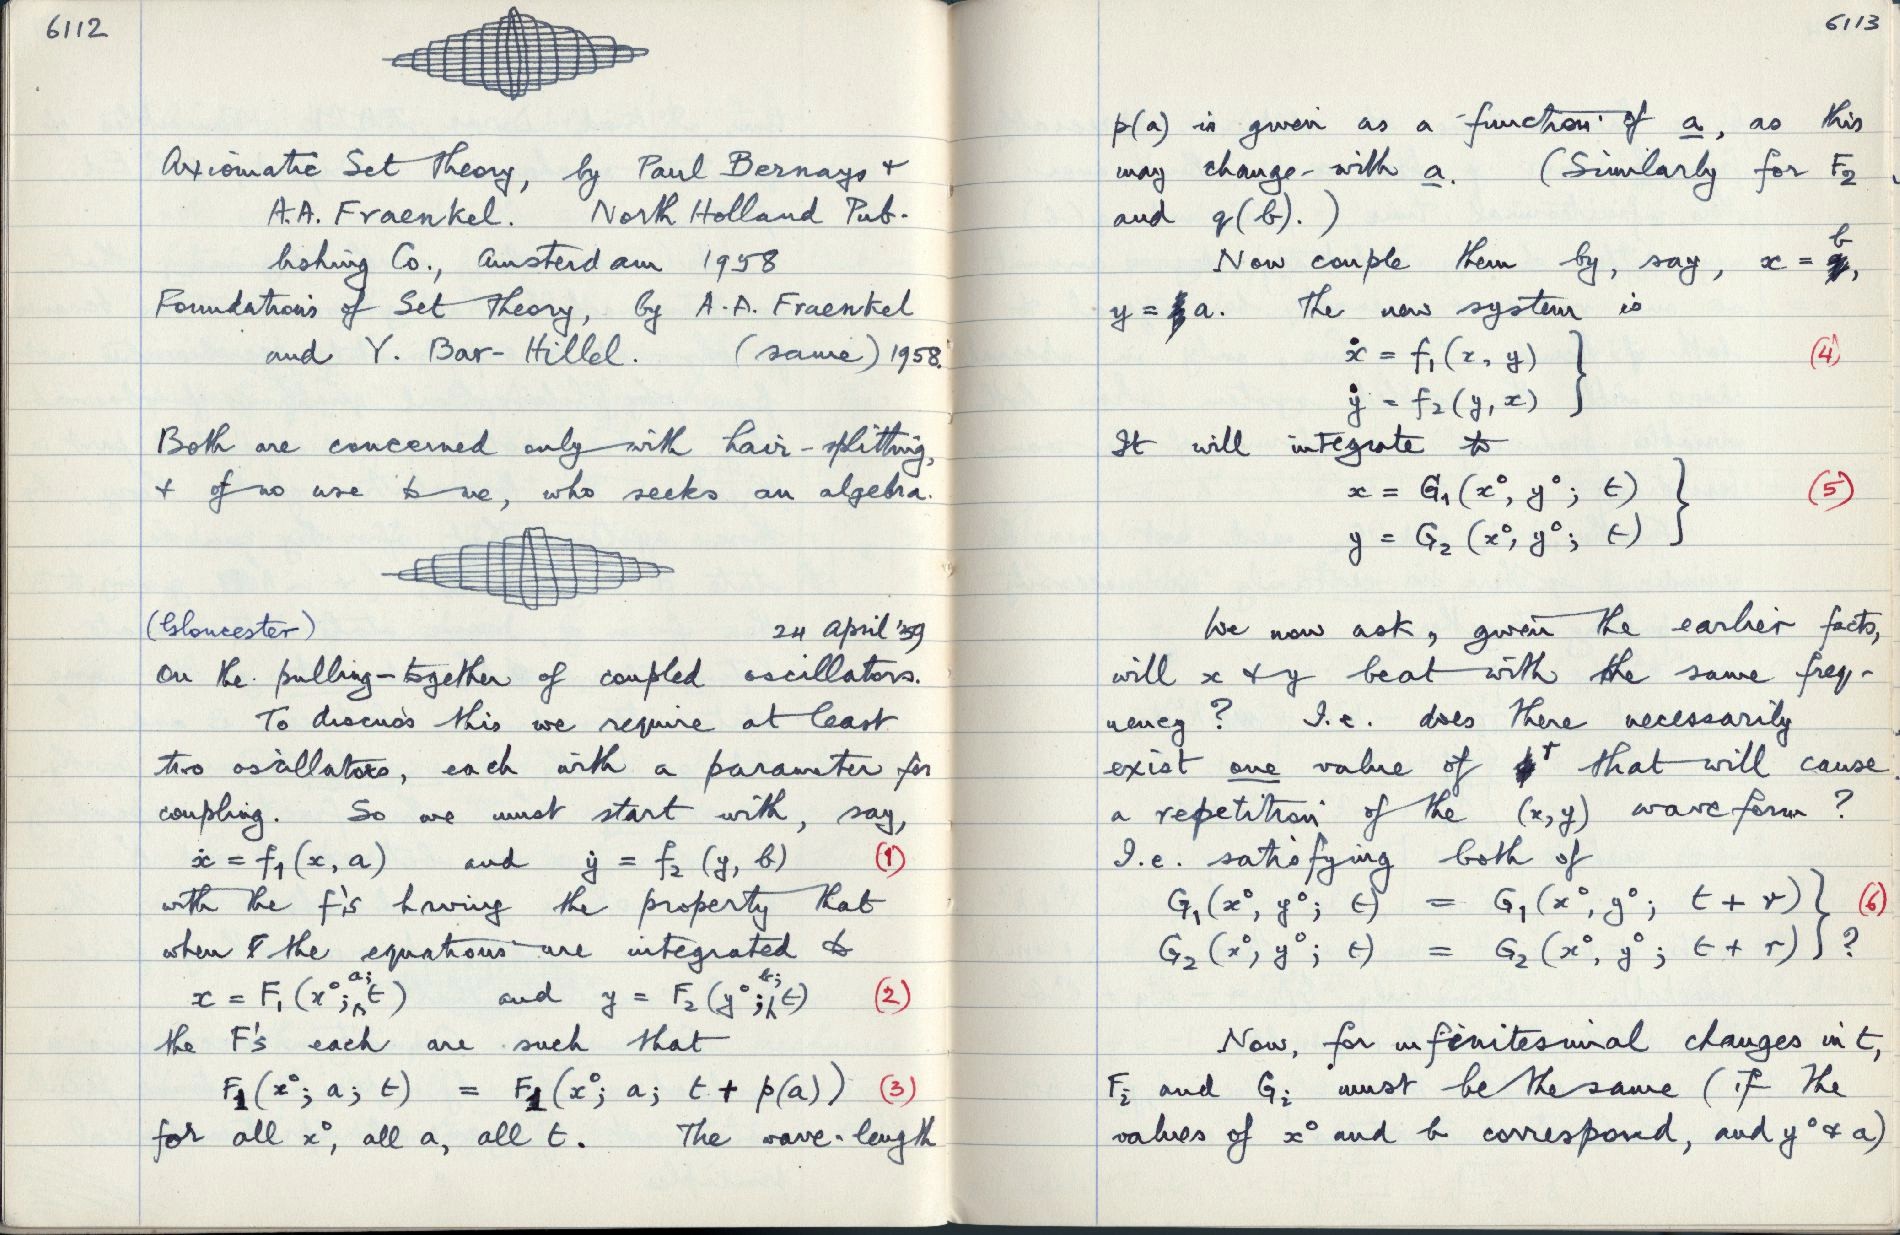 6112
Axiomatic Set Theory, by Paul Bernays +
A.A. Fraenkel. North Holland Pub-
lishing Co., Amsterdam 1958
Foundations of Set Theory, by A.A. Fraenkel
and Y. Bar-Hillel. (same) 1958.
Both are concerned only with hair-splitting,
+ of no use to me, who seeks an algebra.
(Gloucester) 24 April '59
On the pulling-together of coupled oscillators.
To discuss this we require at least
two oscillators, each with a parameter for
coupling. So we must start with, say,
ẋ = f₁(x, a) and ẏ = f₂(y, b) (1)
with the f's having the property that
when the equations are integrated to
x = F₁(x°; a; t) and y = F₂(y°; b; t) (2)
the F's each are such that
F₁(x°; a; t) = F₁(x°; a; t + p(a)) (3)
for all x°, all a, all t. The wave-length
6113
p(a) is given as a function of a, as this
may change with a. (Similarly for F₂
and q(b).)
Now couple them by, say, x = b,
y = a. The new system is
ẋ = f₁(x, y) }
ẏ = f₂(y, x) } (4)
It will integrate to
x = G₁(x°, y°; t) }
y = G₂(x°, y°; t) } (5)
We now ask, given the earlier facts,
will x + y beat with the same freq-
uency? I.e. does there necessarily
exist one value of r that will cause
a repetition of the (x, y) wave form?
I.e. satisfying both of
G₁(x°, y°; t) = G₁(x°, y°; t + r) } (6)
G₂(x°, y°; t) = G₂(x°, y°; t + r) } ?
Now, for infinitesimal changes in t,
Fᵢ and Gᵢ must be the same (if the
values of x° and b correspond, and y° + a)